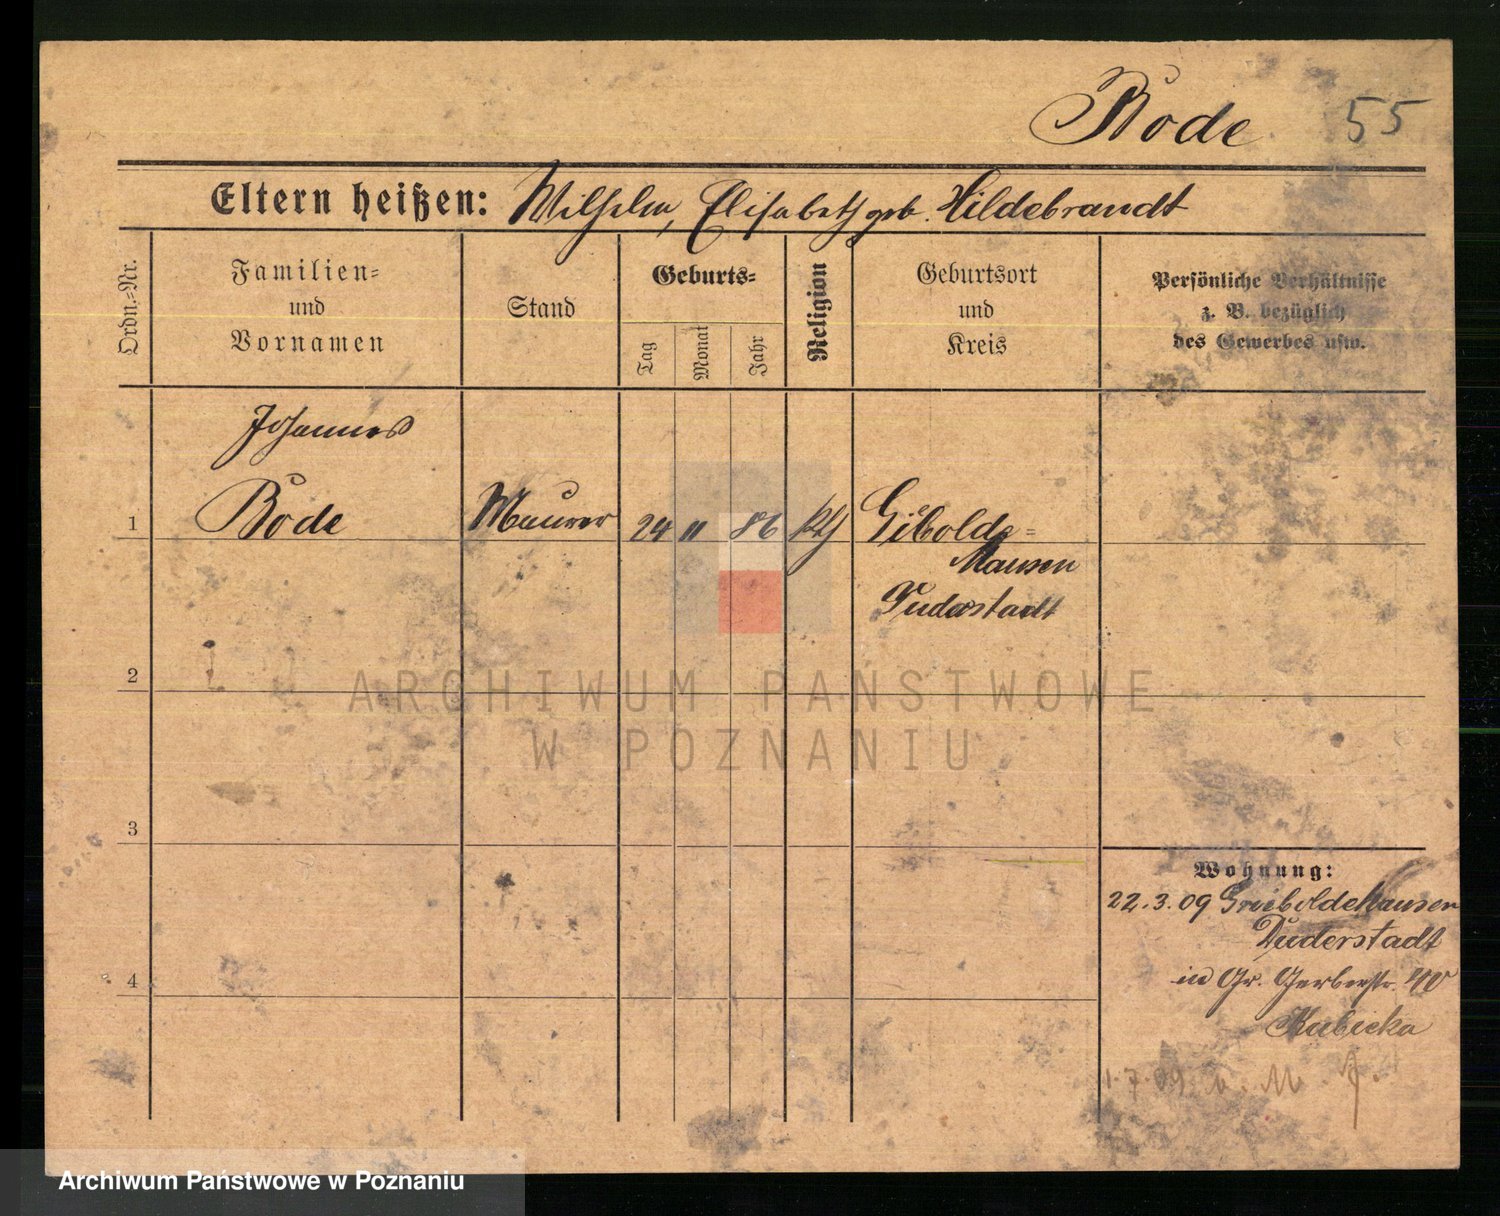 Bode 55
Eltern heißen: Wilhelm, Elisabeth geb. Hildebrandt
Ordn.-Nr.
Familien-
und
Vornamen
Stand
Geburts-
Tag
Monat
Jahr
Religion
Geburtsort
und
Kreis
Persönliche Verhältnisse
z. B. bezüglich
des Gewerbes usw.
Johannes
1 Bode Maurer 24 11 86 kth Gibolde-
hausen
Duderstadt
2
ARCHIWUM PAŃSTWOWE
W POZNANIU
3
Wohnung:
22.3.09 Grieboldehausen
Duderstadt
4
in Gr. Gerberstr. 40
Kubicka
1.7.09
Archiwum Państwowe w Poznaniu